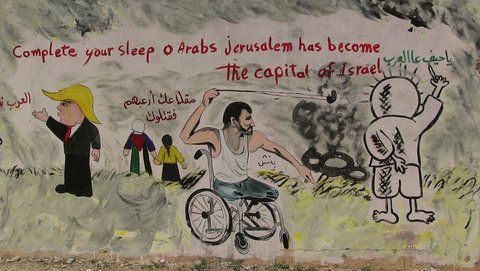 Complete your sleep o Arabs jerusalem has become
The capital of Israel
يا حيف عا العرب
العرب
مقلاعك أرعبهم
فقتلوك